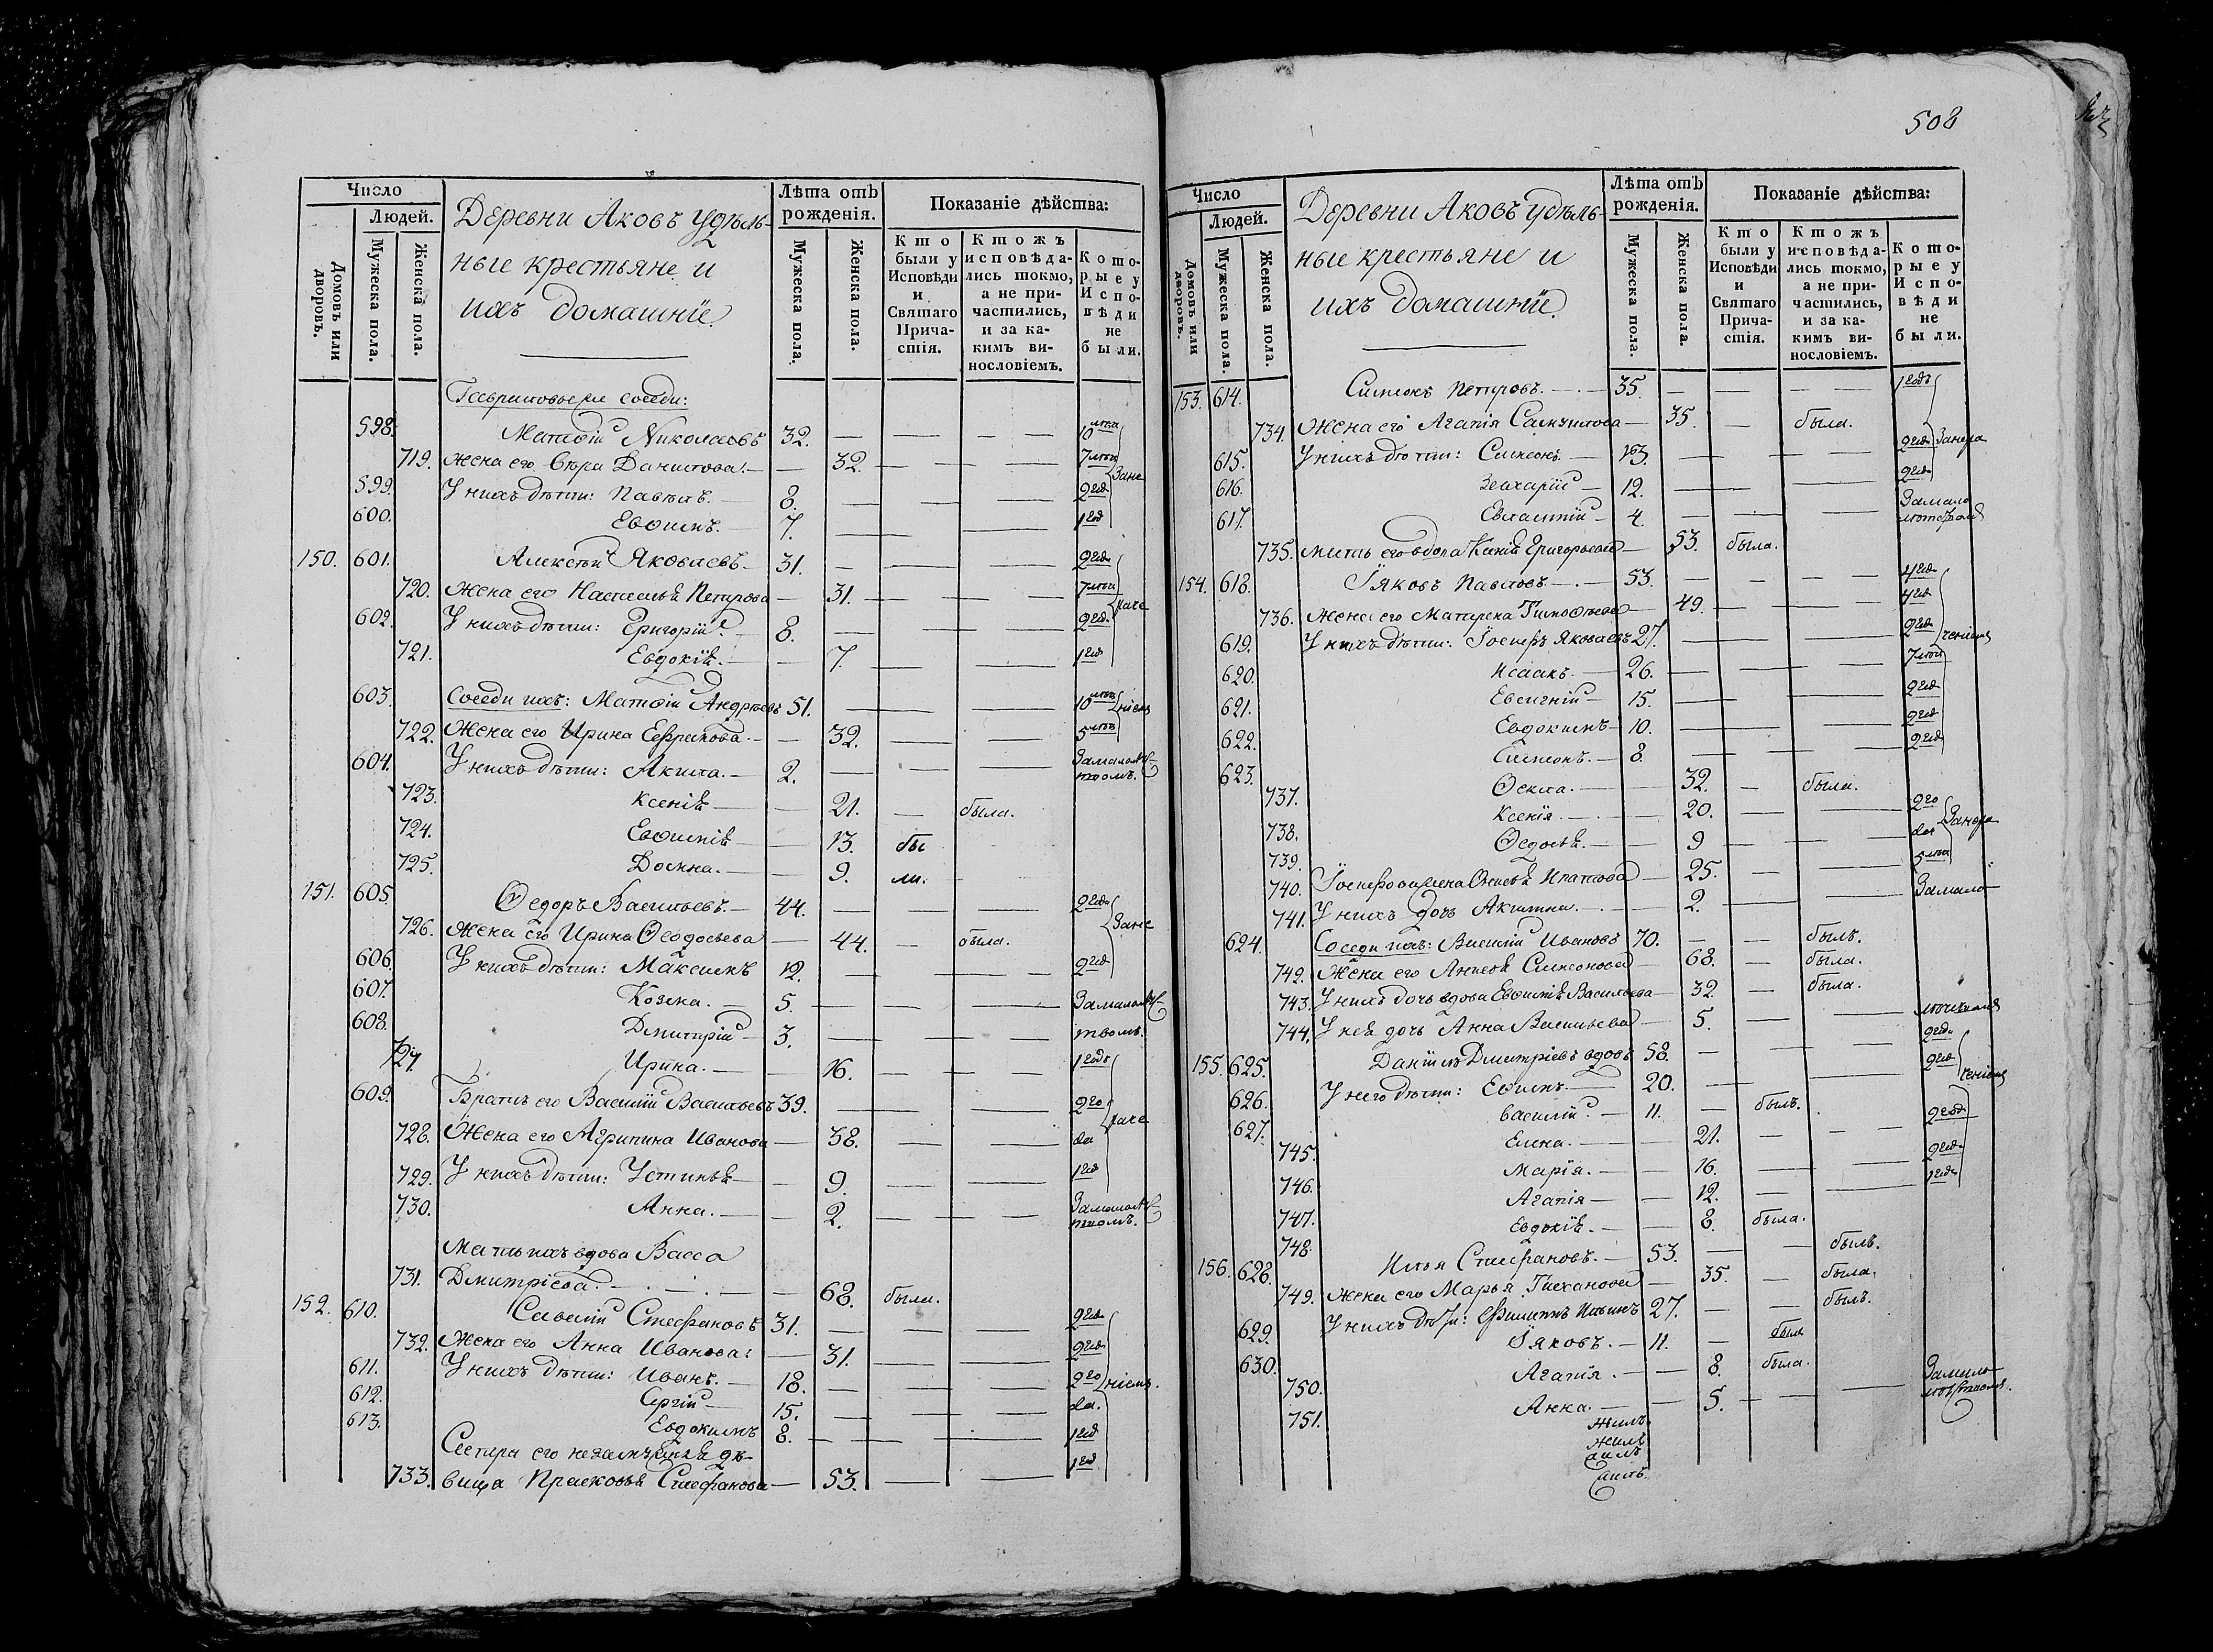 508
Число
Людей.
Домовъ или дворовъ.
Мужеска пола.
Женска пола.
Деревни Аковъ удѣль-
ные крестьяне и
ихъ домашніе.
Лѣта отъ рожденія.
Мужеска пола.
Женска пола.
Показаніе дѣйства:
Кто были у Исповѣди и Святаго Прича-стія.
Ктожъ исповѣда-лись токмо, а не при-частились, и за ка-кимъ ви-нословіемъ.
Кото-рые у Испо-вѣди не были.
Гавриловыхъ соседи:
598. Матвій Николаевъ 32. — — — 10 лѣтъ
719. Жена его Вѣра Данилова. — 32. — — 7 лѣтъ
Зане
599. У нихъ дѣти: Павелъ. — 8. — — 2 год
600. Евѳимъ. — 7. — — 1 год
150. 601. Алексѣй Яковлевъ — 31. — — 2 год
720. Жена его Настасья Петрова — 31. — — 7 лѣтъ
раче
602. У нихъ дѣти: Григорій. — 8. — — 2 год
721. Евдокія. — — 7. — — 1 год
603. Соседи ихъ: Матвій Андреевъ 51. — — 10 лѣтъ
ніемъ
722. Жена его Ирина Ефремова. — — 32. — — 5 лѣтъ
604. У нихъ дѣти: Акила. — 2. — — Замалолѣтствомъ.
723. Ксенія — — 21. — была.
724. Евѳимія — — 13. бы
725. Домна. — — 9. ли.
151. 605. Ѳедоръ Васильевъ. — 44. — — 2 год
Зане
726. Жена его Ирина Ѳеодосьева — 44. — была.
606. У нихъ дѣти: Максимъ 12. — — 2 год
607. Козма. — 5. — — Замалолѣт-
608. Дмитрій — 3. — — ствомъ.
727. Ирина. — — 16. — — 1 годъ
609. Братъ его Василій Васильевъ 39. — — 2 го
раче
728. Жена его Агрипина Иванова — 38. — — да
729. У нихъ дѣти: Устинья — — 9. — — 1 год
730. Анна. — — 2. — — Замалолѣтствомъ.
Мать ихъ вдова Васса
731. Дмитріева. — — 68. была.
152. 610. Савелій Стефановъ 31. — — 2 год
732. Жена его Анна Иванова: — 31. — — 2 год
611. У нихъ дѣти: Иванъ. — 18. — — 2 го
ніемъ.
612. Сергій — 15. — — да.
613. Евдокимъ 8. — — 1 год
Сестра его незамужняя дѣ-
733. вица Прасковья Стефанова — 53. — — 1 год
Число
Людей.
Домовъ или дворовъ.
Мужеска пола.
Женска пола.
Деревни Аковъ удѣль-
ные крестьяне и
ихъ домашніе.
Лѣта отъ рожденія.
Мужеска пола.
Женска пола.
Показаніе дѣйства:
Кто были у Исповѣди и Святаго Прича-стія.
Ктожъ исповѣда-лись токмо, а не при-частились, и за ка-кимъ ви-нословіемъ.
Кото-рые у Испо-вѣди не были.
153. 614. Симеонъ Петровъ. — 35. — — — 1 годъ
734. Жена его Агапія Самуилова — 35. — была.
615. У нихъ дѣти: Симеонъ. — 13. — — 2 год
616. Захарій — 12. — — 2 год
617. Евлампій — 4. — — Замало
735. Мать его вдова Ксенія Григорьева — 53. была.
154. 618. Іяковъ Павловъ. — 53. — — 4 год
736. Жена его Матрена Тимоѳеева — 49. — — 4 год
619. У нихъ дѣти: Іосифъ Яковлевъ 27. — — 2 год
ченіемъ
620. Исаакъ. — 26. — — 7 лѣтъ
621. Евсигній — 15. — — 2 год
622. Евдокимъ — 10. — — 2 год
623. Симеонъ. — 8. — — 2 год
737. Ѳекла. — — 32. — была.
738. Ксенія. — — 20. — — 2 го
739. Ѳедосья. — — 9 — — да
740. Іосифова жена Ипатова — 25. — — 5 лѣтъ
741. У нихъ дочь Акилина. — — 2. — — Замало
624. Соседи ихъ: Василій Ивановъ 70. — — былъ.
742. Жена его Анисья Симеонова — 68. — была.
743. У нихъ дочь вдова Евѳимія Васильева — 32 — была.
744. У нея дочь Анна Васильева — 5. — —
155. 625. Даніилъ Дмитріевъ вдовъ 58. — — 2 год
626. У него дѣти: Евѳимъ. — 20. — — 2 год
ченіемъ
627. Василій. — 11. — былъ.
745. Елена. — — 21. — — 2 год
746. Марія. — — 16. — — 2 год
747. Агапія — — 12. — — 1 год
748. Евдокія. — — 8. была.
156. 628. Илья Стефановъ. — 53. — — былъ.
749. Жена его Марья Тиханова — 35. — была.
629. У нихъ дѣти: Филиппъ Ильинъ 27. — — былъ.
630. Іяковъ. — 11. — былъ
750. Агапія. — — 8. была.
751. Анна. — — 5. — — Замало-